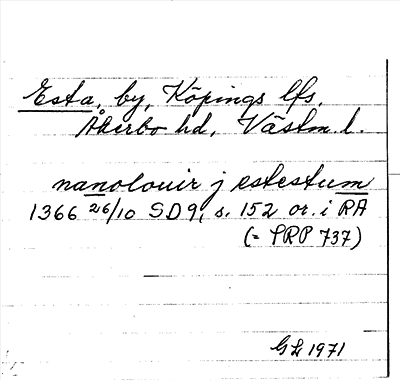 Esta, by, Köpings lfs,
Åkerbo hd, Västm. l.
nanolouir j estestum
1366 26/10 SD9, s. 152 or. i RA
(= SRP 737)
GL 1971